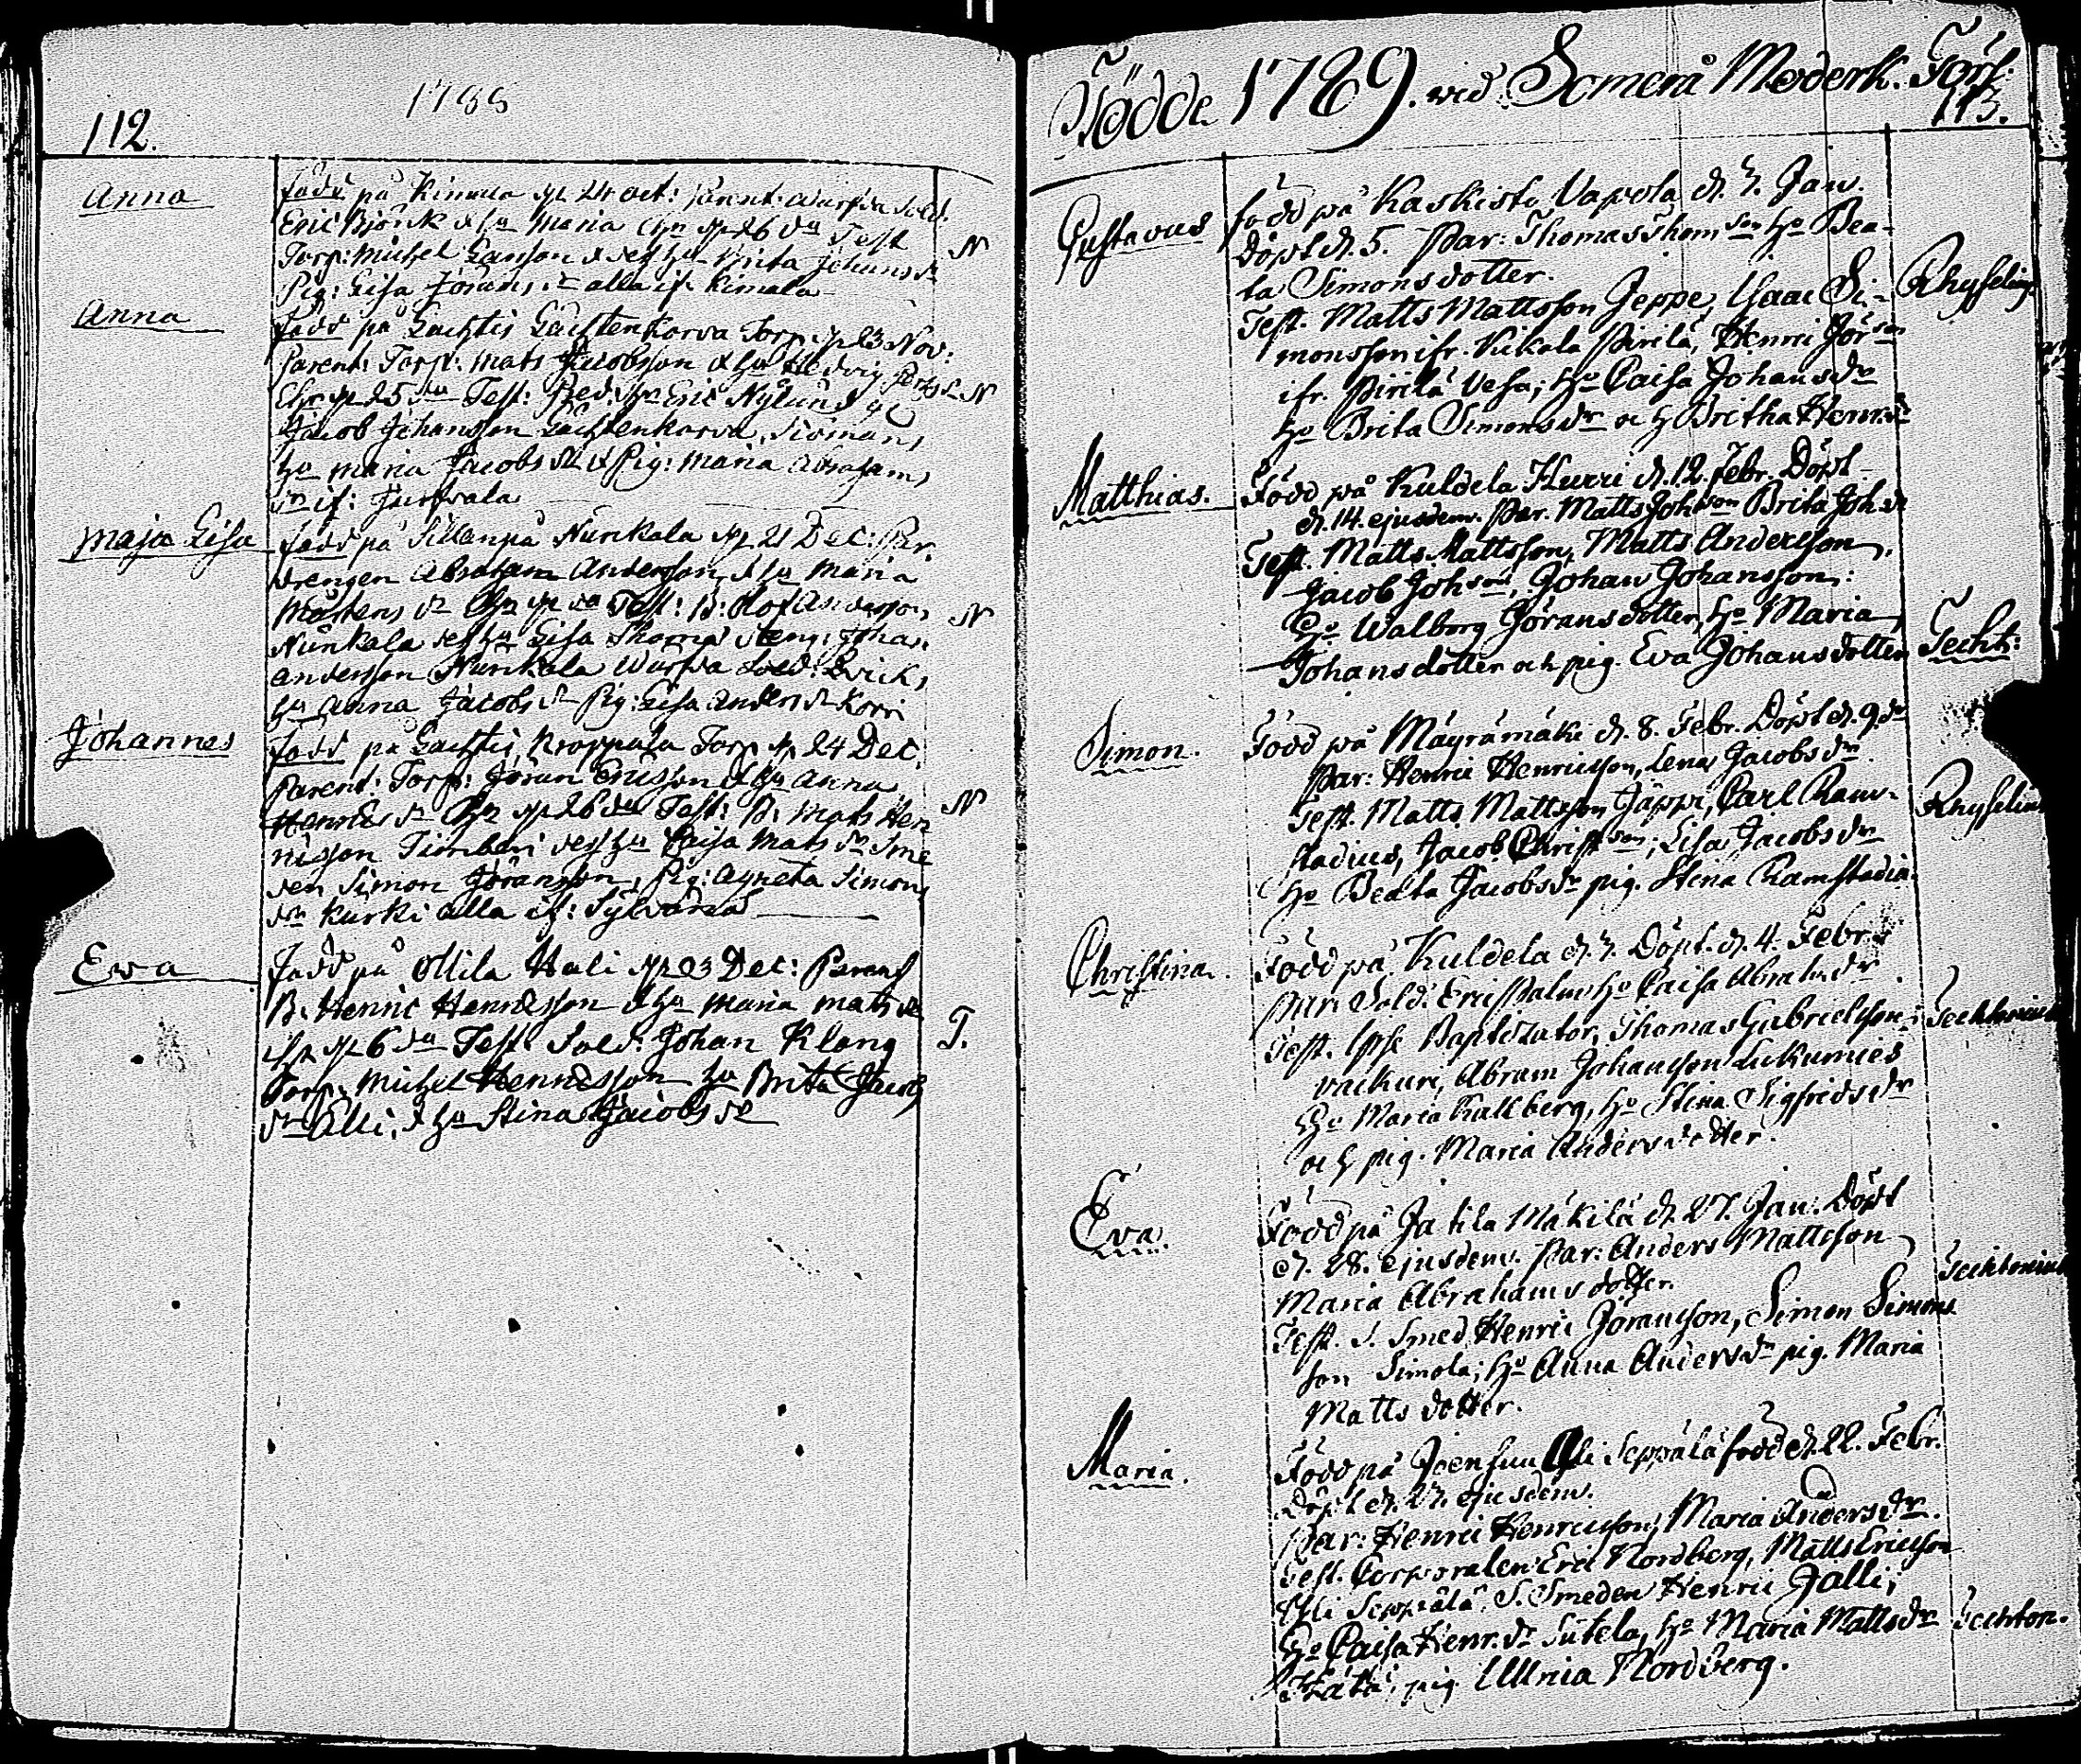 112.
1788
Anna
född på Kimala d. 24 Oct: Parent: Sold.
Eric Björk & hu Maria Chr d 26 du Test
Torp: Michel & des hu Brita Johans dr
Pig: Lisa Jörans dr alla if. Kimala
N
Anna
född på Lachtis Torp d 23 Nov:
Parent: Torp: Mats Jacobsson & hu Hedvig
Chr d 25 du Test: Eric Nylund
Jacob Johansson
hu Maria Jacobs dr & Pig: Maria Abrahams
dr if:
N
Maja Lisa
född på Sillanpä Nurikala d 21 Dec: Par.
drengen Abraham Andersson & hu Maria
Mårtens dr Chr d du Test: B: Olof Andersson
Nurikala des hu Lisa Thomas dr Johan
Andersson Nurikala Sold:
hu Anna Jacobs dr Pig: Lisa Anders dr Korri
N
Johannes
född på Lachtis Kroppula Torp d 24 Dec.
Parent: Torp: Jöran Ericsson & hu Anna
Henrics dr Chr d 26 du Test: B: Mats Hen
ricsson Timberi des hu Caisa Mats dr Sme
den Simon Jöransson, Pig: Agneta Simons
dr Kurki alla if: Sylvänä
N
Ewa
född på Ollila Uuli d 3 Dec: Parent
B. Henric Henricsson & hu Maria Mats dr
Chr d 6 du Test: Sold: Johan Klang
Torp: Michel Henricsson hu Brita Jacobs
dr Elli, & hu Stina Jacobs dr
T.
Födde 1789. vid Somerå Moderk. Förs.
113.
Gustavus
född på Kaskisto Uapola d. 3. Jan.
döpt d. 5. Par: Thomas Thomsson Ho Bea-
ta Simonsdotter.
Test. Matts Mattsson Jeppe, Isaac Si-
monsson ifr. Kirkola Pirilä, Henric Jörson
ifr. Pirilä Vesa; Ho Caisa Johansdr
Ho Brita Simonsdr och H Britha Henrsdr
Rhyselius
Matthias.
Född på Kuldela Hurri d. 12. Febr. Döpt
d. 14. ejusdem. Par. Matts Johson Brita Joh.dr
Test. Matts Mattsson, Matts Andersson,
Jacob Johson, Johan Johansson:
Ho Walborg Göransdotter, Ho Maria
Johansdotter och pig. Eva Johansdotter
Techt:
Simon.
Född på Mäyrämäki d. 8. Febr. Döpt d. 9. dr
Par: Henric Henricsson, Lena Jacobsdr.
Test. Matts Mattsson Jäppi, Carl Ram-
stadius, Jacob Christson; Lisa Jacobsdr
Ho Beata Jacobsdr pig. Stina Ramstadia.
Rhyselius
Christina.
Född på Kuldela d. 3. Döpt. d. 4. Febr.
Par. Sold. Eric Palm Ho Caisa Abrah.dr
Test. Ipse Baptizator, Thomas Gabrielsson
Vackuri, Abram Johansson Lukumies
Ho Maria Kallberg, Ho Stina Sigfridsdr
och pig. Maria Andersdotter.
Techtonius
Eva.
Född på Jatila Mäkilä d. 27. Jan. Döpt
d. 28. ejusdem. Par: Anders Mattsson
Maria Abrahamsdotter.
Test. S. Smed Henric Göransson, Simon Simons
son Simola; Ho Anna Andersdr pig. Maria
Mattsdotter.
Techtonius
Maria.
Född på Joensuu Yli Seppälä född d. 22. Febr.
Döpt d. 27. ejusdem.
Par: Henric Henricsson, Maria Andersdr.
Test. Corporalen Eric Nordberg, Matts Ericsson
Yli Seppälä, S. Smeden Henric Jalli;
Ho Caisa Henr.dr Sutela, Ho Maria Mattsdr
pig. Ulrica Nordberg.
Techton.